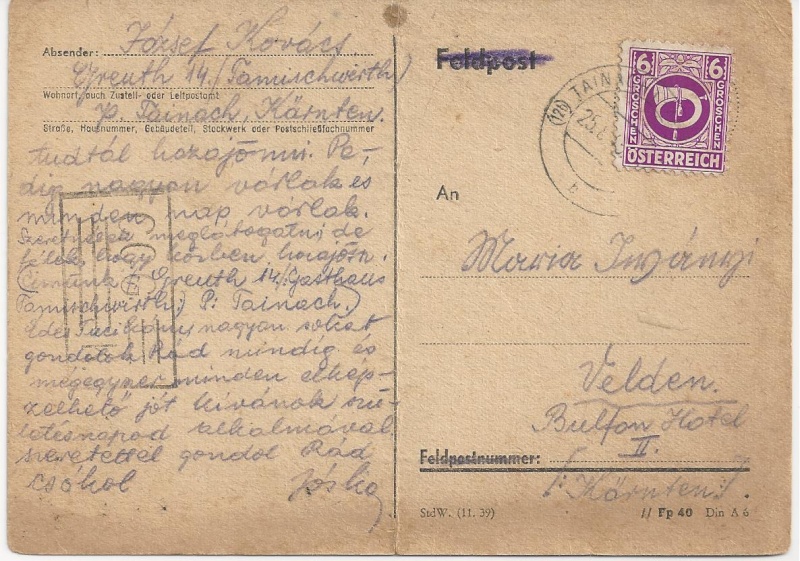 Absender: József Kovács
Greuth 14/Tamischwirth)
Wohnort, auch Zustell- oder Leitpostamt
P. Tainach, Kärnten.
Straße, Hausnummer, Gebäudeteil, Stockwerk oder Postschließfachnummer
tudtál hazajönni. Pe-
dig nagyon várlak és
minden nap várlak.
Szeretnélek meglátogatni de
félek, hogy közben hazajösz.
(Címünk: Greuth 14/Gasthaus
Tamischwirth) P. Tainach.)
Édes Tucikám, nagyon sokat
gondolok Rád mindig és
mégegyszer minden elkép-
zelhető jót kívánok szü-
letésnapod alkalmával
szeretettel gondol Rád
csókol Jóska
Feldpost
(12b) TAINA
25.
b
6 6
GROSCHEN GROSCHEN
ÖSTERREICH
An
Maria Iványi
Velden.
Bulfon Hotel
II.
Feldpostnummer:
/: Kärnten :/
StdW. (11. 39) // Fp 40 Din A 6